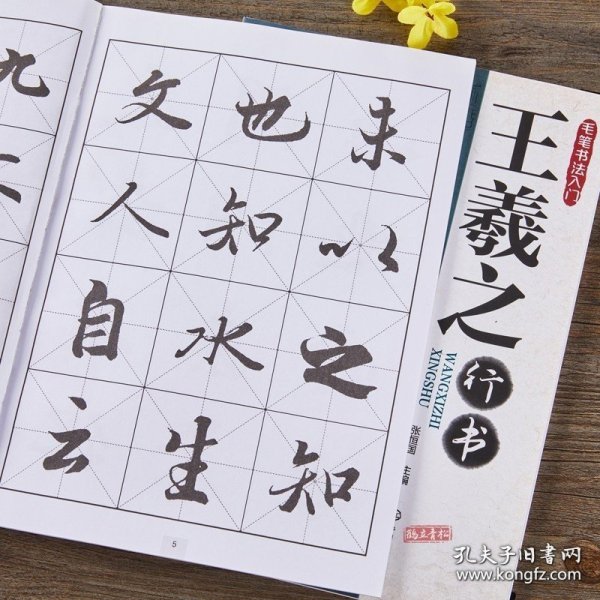 文也未
人知以
自水之
云生知
5
九
毛笔书法入门
王羲之
行书
WANGXIZHI
XINGSHU
张恒国 主编
鹤立青松
孔夫子旧书网
www.kongfz.com